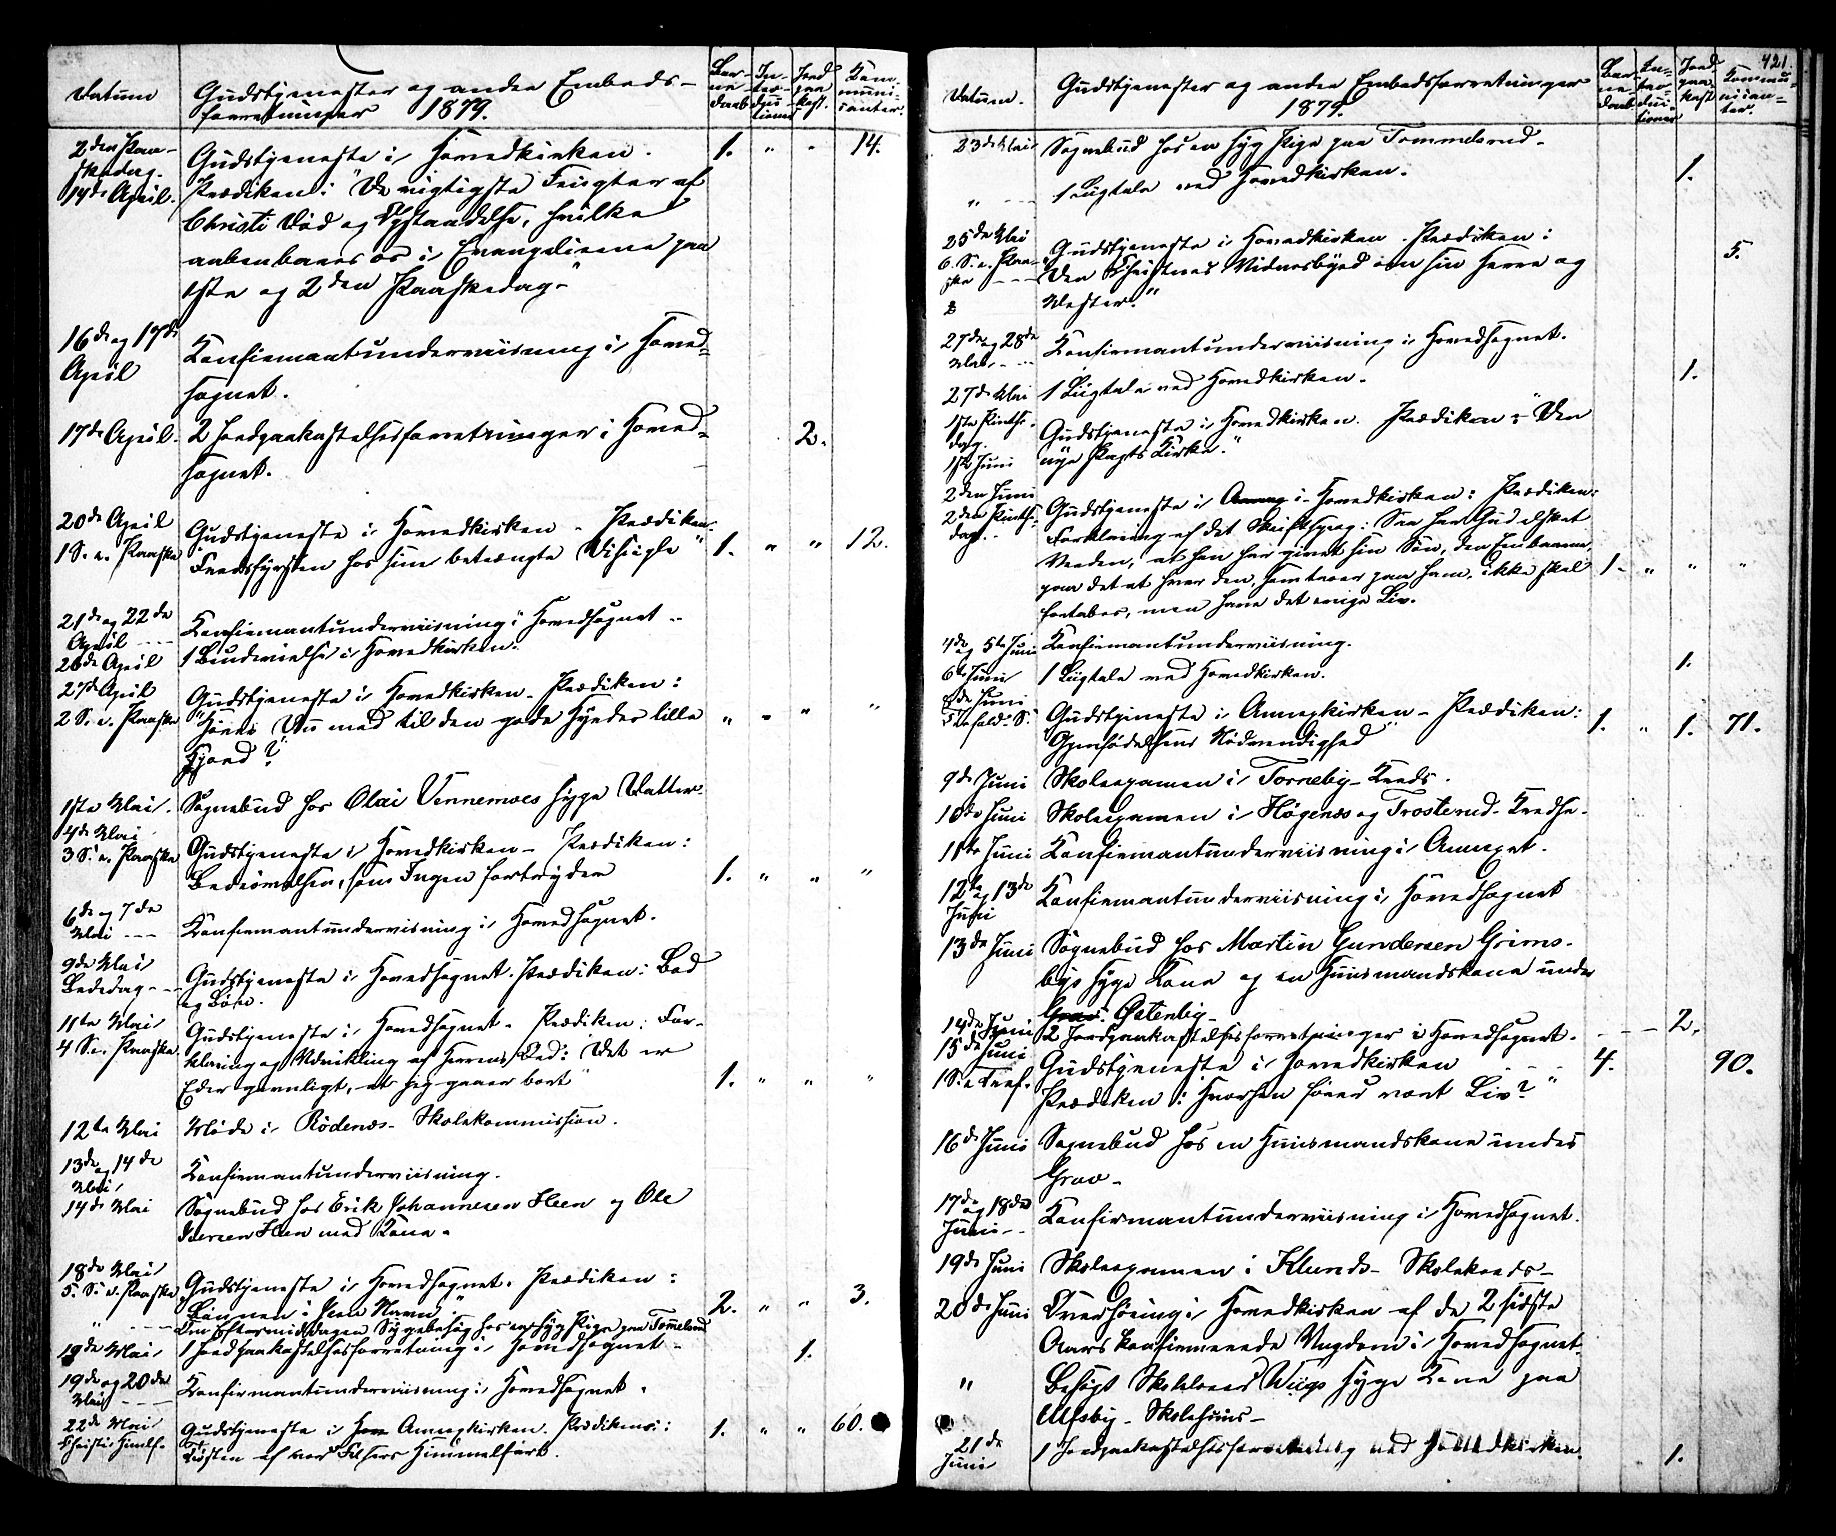 Datum
Gudstjenester og andre Embeds-
forretninger 1879.
Bar-
ne-
daab
In-
tro-
duc-
tioner
Jord
paa
kast.
Kom-
muni-
canter.
2den Paa-
skedag.
14de April.
Gudstjeneste i Hovedkirken. 1. " " 14.
Prædiken: "De vigtigste Frugter af
Christi Død og Opstandelse, hvilke
aabenbares os i Evangelierne paa
1ste og 2den Paaskedag"
16de og 17de
April
Konfirmantunderviisning i Hoved-
sognet.
17de April. 2 Jordpaakastelsesforretninger i Hoved- 2.
sognet.
20de April
1 S. e. Paaske
Gudstjeneste i Hovedkirken - Prædiken:
Fredsfyrsten hos sine betrængte Disciple" 1. " " 12.
21de og 22de
April ---
Konfirmantunderviisning i Hovedsognet -
26de April 1 Brudevielse i Hovedkirken.
27de April
2 S. e. Paaske
Gudstjeneste i Hovedkirken - Prædiken:
"Hører Du med til den gode Hyrdes lille " " " "
Hjord?"
1ste Mai. Sognebud hos Olai Vennemoes syge Datter.
4de Mai
3 S. e. Paaske
Gudstjeneste i Hovedkirken - Prædiken:
Bedrøvelsen, som Ingen fortryder 1. " " "
6de og 7de
Mai ---
Konfirmantunderviisning i Hovedsognet.
9de Mai
Bededag ---
Gudstjeneste i Hovedsognet. Prædiken: Bod
og Bøn.
11te Mai
4 S. e. Paaske.
Gudstjeneste i Hovedsognet - Prædiken: For-
klaring og Udvikling af Herrens Ord: "Det er
Eder gavnligt, at jeg gaaer bort" 1. " " "
12te Mai Møde i Rödenæs - Skolekommission.
13de og 14de
Mai
Konfirmantunderviisning.
14de Mai Sognebud hos Erik Johannesen Steen og Ole
Iversen Steen med Kone.
18de Mai
5. S. e. Paaske
Gudstjeneste i Hovedsognet. Prædiken:
"Bønnen i Jesu Navn." 2. " " 3.
" --- Om Eftermiddagen Sygebesøg hos en syg Pige paa Tomelsrud
19de Mai 1 Jordpaakastelsesforretning i Hovedsognet - 1.
19de og 20de
Mai ---
Konfirmantunderviisning i Hovedsognet.
22de Mai
Christi Himlf.
Gudstjeneste i Annexkirken. Prædiken: 1. " " 60.
Trøsten af vor Frelsers Himmelfart.
421.
Datum.
Gudstjenester og andre Embedsforretninger
1879.
Bar-
ne-
daab
In-
tro-
duc-
tioner
Jord-
paa-
kast
Kommu-
nican-
ter.
23de Mai Sognebud hos en syg Pige paa Tommelsrud.
" --- 1 Liigtale ved Hovedkirken. 1.
25de Mai
6. S. e. Paa-
ske ---
Gudstjeneste i Hovedkirken. Prædiken: 5.
"Den Christnes Vidnesbyrd om sin Herre og
Mester."
27de og 28de
Mai ---
Konfirmantunderviisning i Hovedsognet.
27de Mai 1 Liigtale ved Hovedkirken. 1.
1ste Pintse-
dag.
1ste Juni
Gudstjeneste i Hovedkirken. Prædiken: "Den
nye Pagts Kirke."
2den Juni
2den Pintse-
dag.
Gudstjeneste i Annex i Hovedkirken: Prædiken:
Forklaring af det Skriftsprog: Saa har Gud elsket
Verden, at han har givet sin Søn, den Enbaarne,
paa det at hver den, som troer paa ham, ikke skal 1 - " " "
fortabes, men have det evige Liv.
4de og 5te Juni Konfirmantunderviisning.
6te Juni 1 Liigtale ved Hovedkirken. 1.
8de Juni
Trefold. S.
Gudstjeneste i Annexkirken - Prædiken: 1. " 1. 71.
"Gjenfødelsens Nødvendighed"
9de Juni Skoleexamen i Torneby - Kreds.
10de Juni Skoleexamen i Högenæs og Trosterud - Kredse.
11te Juni Konfirmantunderviisning i Annexet.
12te og 13de
Juni
Konfirmantunderviisning i Hovedsognet
13de Juni Sognebud hos Martin Gundersen Grims-
bys syge Kone og en Huusmandskone under
Grav. Østenby -
14de Juni 2 Jordpaakastelsesforretninger i Hovedsognet. --- 2.
15de Juni
1 S. e. Tref.
Gudstjeneste i Hovedkirken 4. 90.
Prædiken: Hvorhen fører vort Liv?"
16de Juni Sognebud hos en Huusmandskone under
Grav -
17de og 18de
Juni --
Konfirmantunderviisning i Hovedsognet.
19de Juni Skoleexamen i Klunds - Skolekreds -
20de Juni Overhøring i Hovedkirken af de 2 sidste
Aars konfirmerede Ungdom i Hovedsognet.
" Besøgt Skolelærer Wiigs syge Kone paa
Ulfsby - Skolehuus -
21de
Juni
1 Jordpaakastelsesforretning ved Hovedkirken. 1.